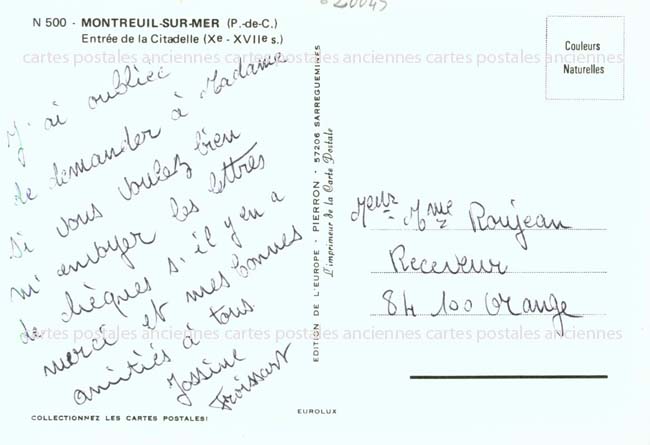 20045
N 500 - MONTREUIL-SUR-MER (P.-de-C.)
Entrée de la Citadelle (Xe - XVIIe s.)
cartes postales anciennes cartes postales anciennes cartes postales anciennes
J'ai oubliée
de demander à Madame
si vous voulez bien
m'envoyer les lettres
de chèques s'il y en a
merci et mes bonnes
amitiés à tous.
Jossine
Froissart
COLLECTIONNEZ LES CARTES POSTALES!
EDITION DE L'EUROPE - PIERRON - 57206 SARREGUEMINES
L'imprimeur de la Carte Postale
EUROLUX
Couleurs
Naturelles
Meur Mme Roujean
Receveur
84 100 Orange
cartes postales anciennes cartes postales anciennes cartes postales anciennes